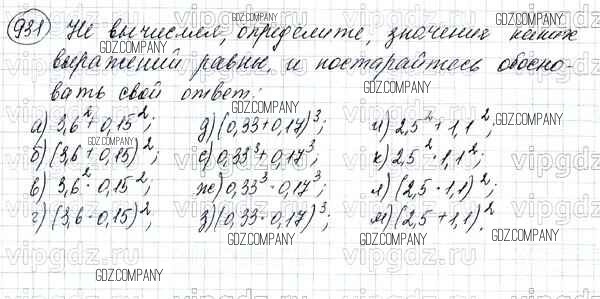 931 Не вычисляя, определите, значения каких
выражений равны, и постарайтесь обосно-
вать свой ответ:
а) 3,6² + 0,15²; д) (0,33+0,17)³; и) 2,5² + 1,1²;
б) (3,6 + 0,15)²; е) 0,33³ + 0,17³; к) 2,5² · 1,1²;
в) 3,6² · 0,15²; ж) 0,33³ · 0,17³; л) (2,5 · 1,1)²;
г) (3,6 · 0,15)²; з) (0,33 · 0,17)³; м) (2,5 + 1,1)².
GDZ.COMPANY
vipgdz.ru